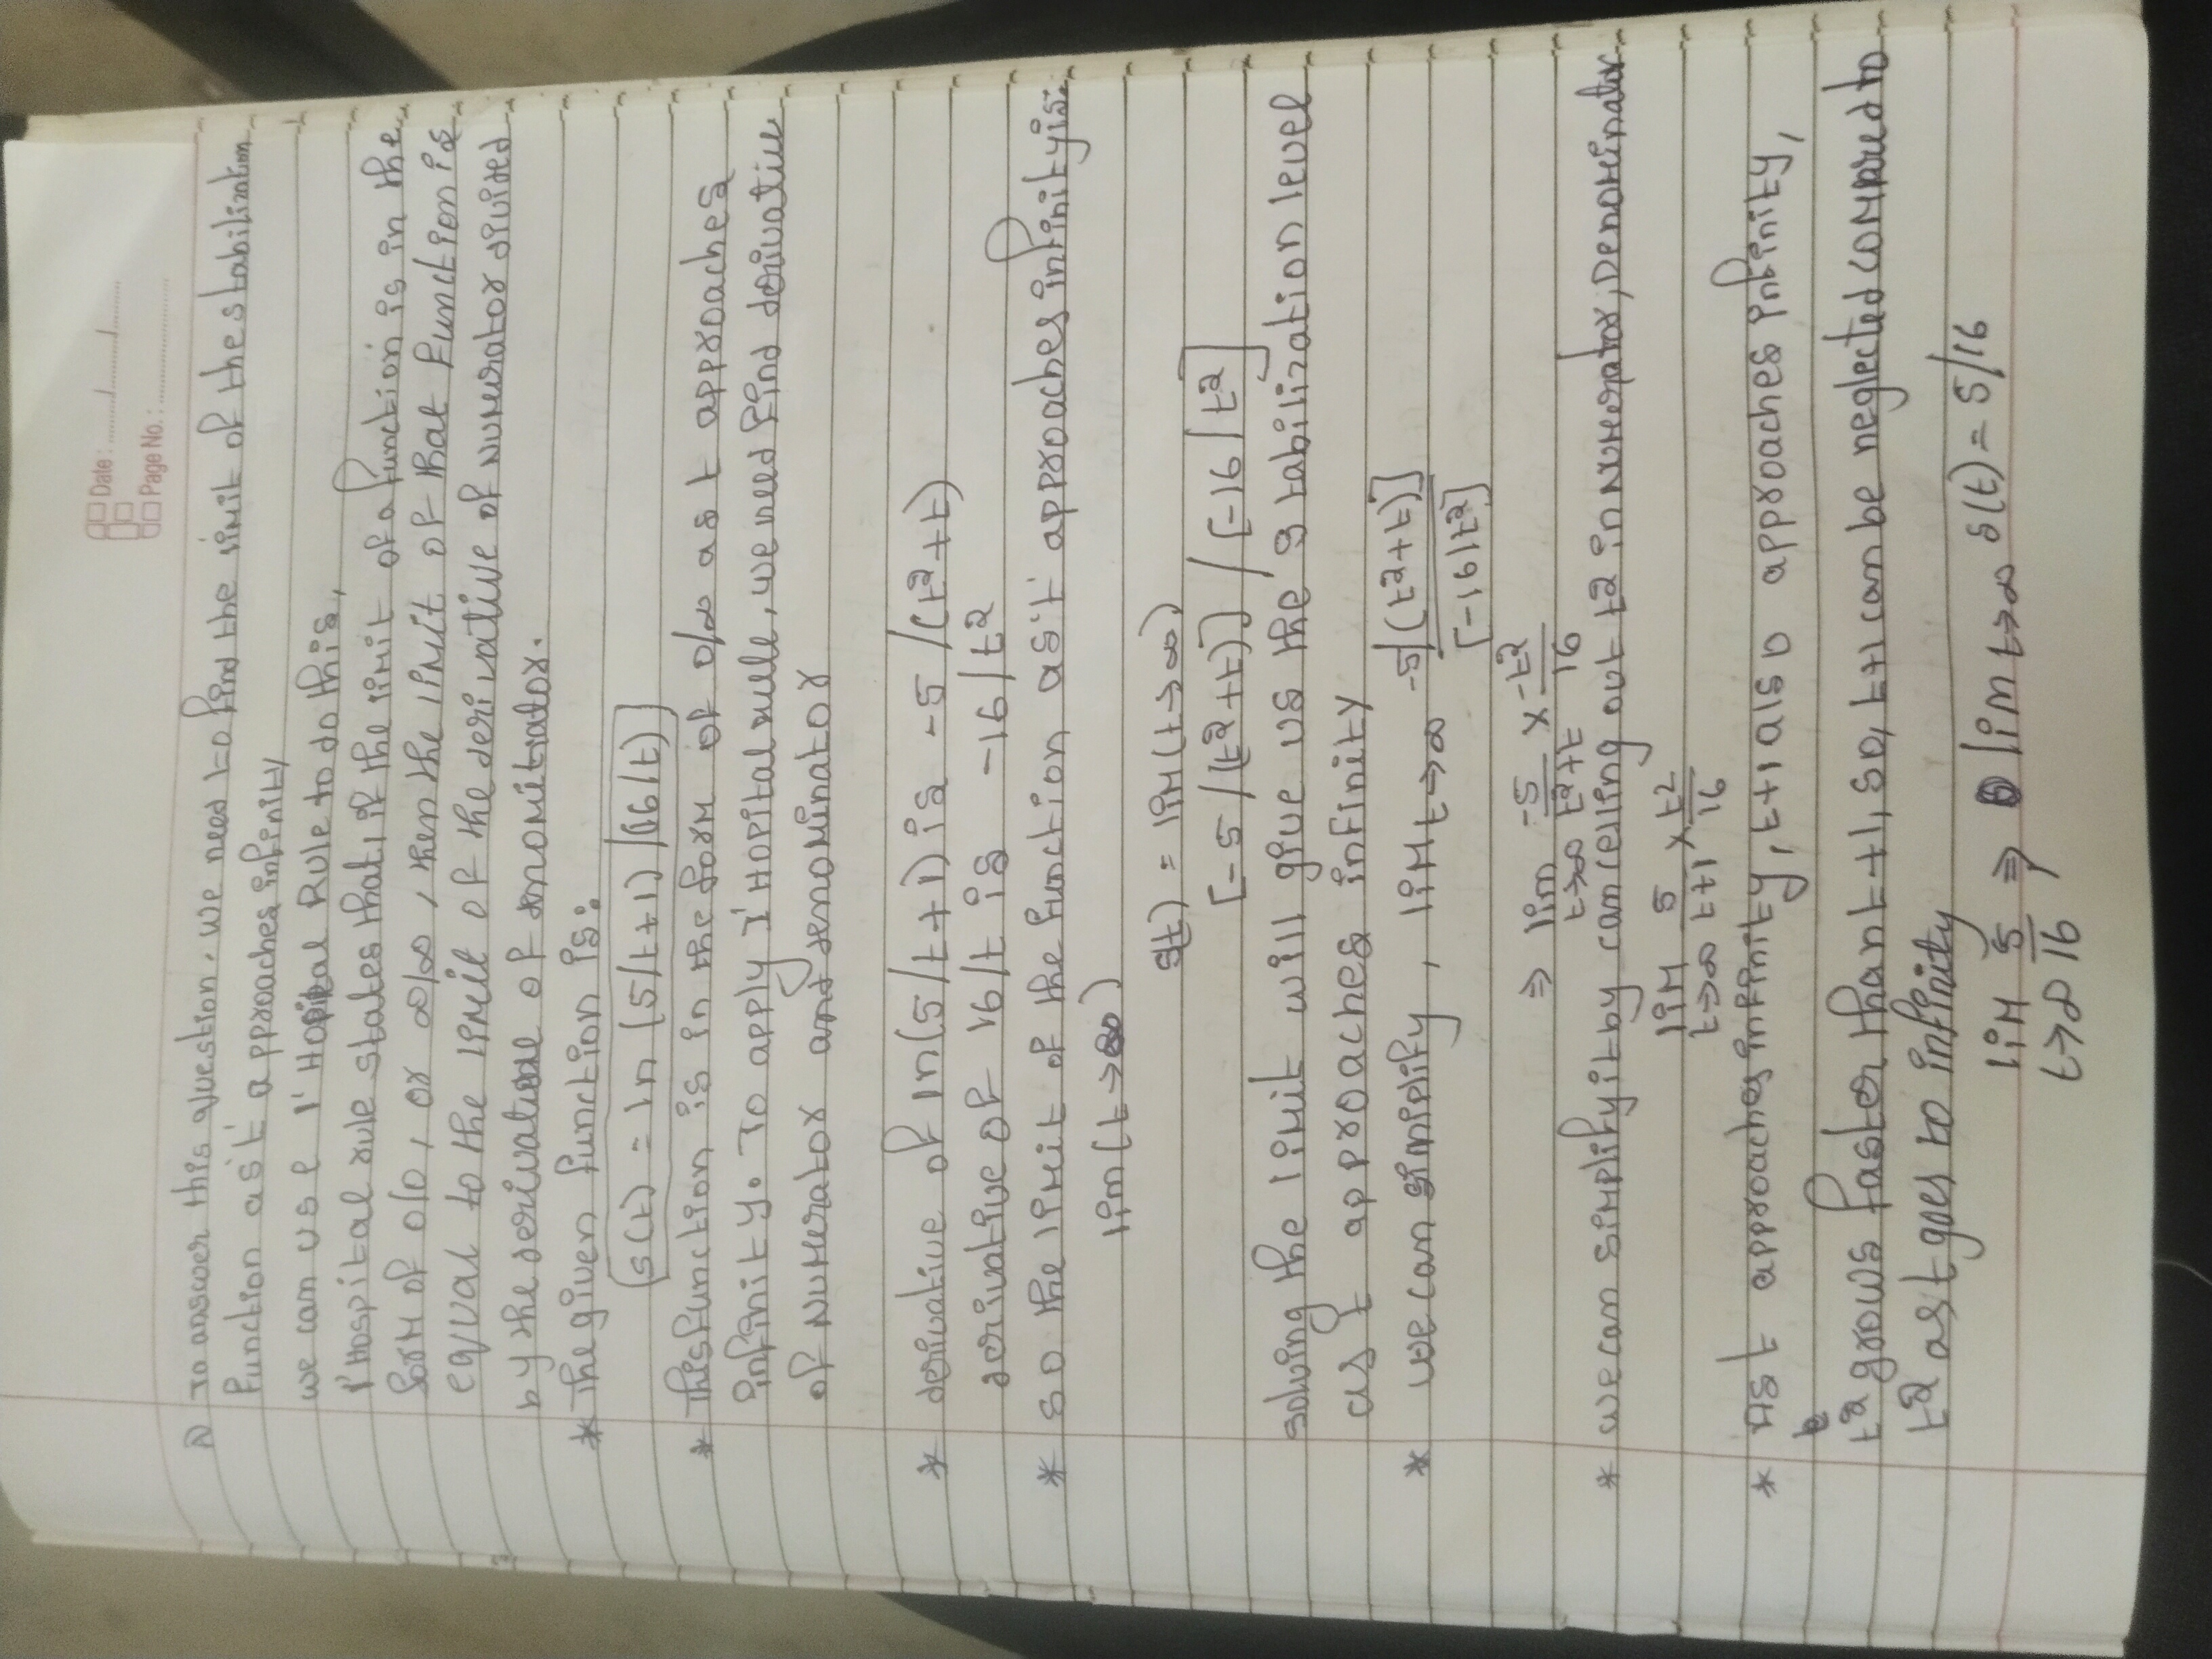 Date : ......../......../........
Page No. : ....................
To answer this question, we need to find the limit of the stabilization
Function as 't' approaches infinity
we can use l' Hopital Rule to do this,
l'Hospital rule states that if the limit of a function is in the
form of 0/0, or ∞/∞, then the limit of that function is
equal to the limit of the derivative of numerator divided
by the derivative of denominator.
* The given function is:
S(t) = ln [5/t+1] / [16/t]
* This function is in the form of 0/∞ as t approaches
infinity. To apply l' Hopital rule, we need find derivative
of numerator and denominator
* derivative of ln(5/t+1) is -5/(t²+t)
derivative of 16/t is -16/t²
* so the limit of the function as 't' approaches infinity is:
lim(t→∞)
s(t) = lim(t→∞)
[-5/(t²+t)] / [-16/t²]
solving the limit will give us the stabilization level
as t approaches infinity
* we can simplify, lim t→∞ -5/(t²+t)] / [-16/t²]
⇒ lim t→∞ -5/t²+t × -t²/16
* we can simplify it by canceling out t² in numerator, Denominator
lim t→∞ 5/t+1 × t²/16
* As t approaches infinity, t+1 also approaches infinity,
t² grows faster than t+1, as, t+1 can be neglected compared to
t² as t goes to infinity
lim t→∞ 5/16 ⇒ lim t→∞ s(t) = 5/16